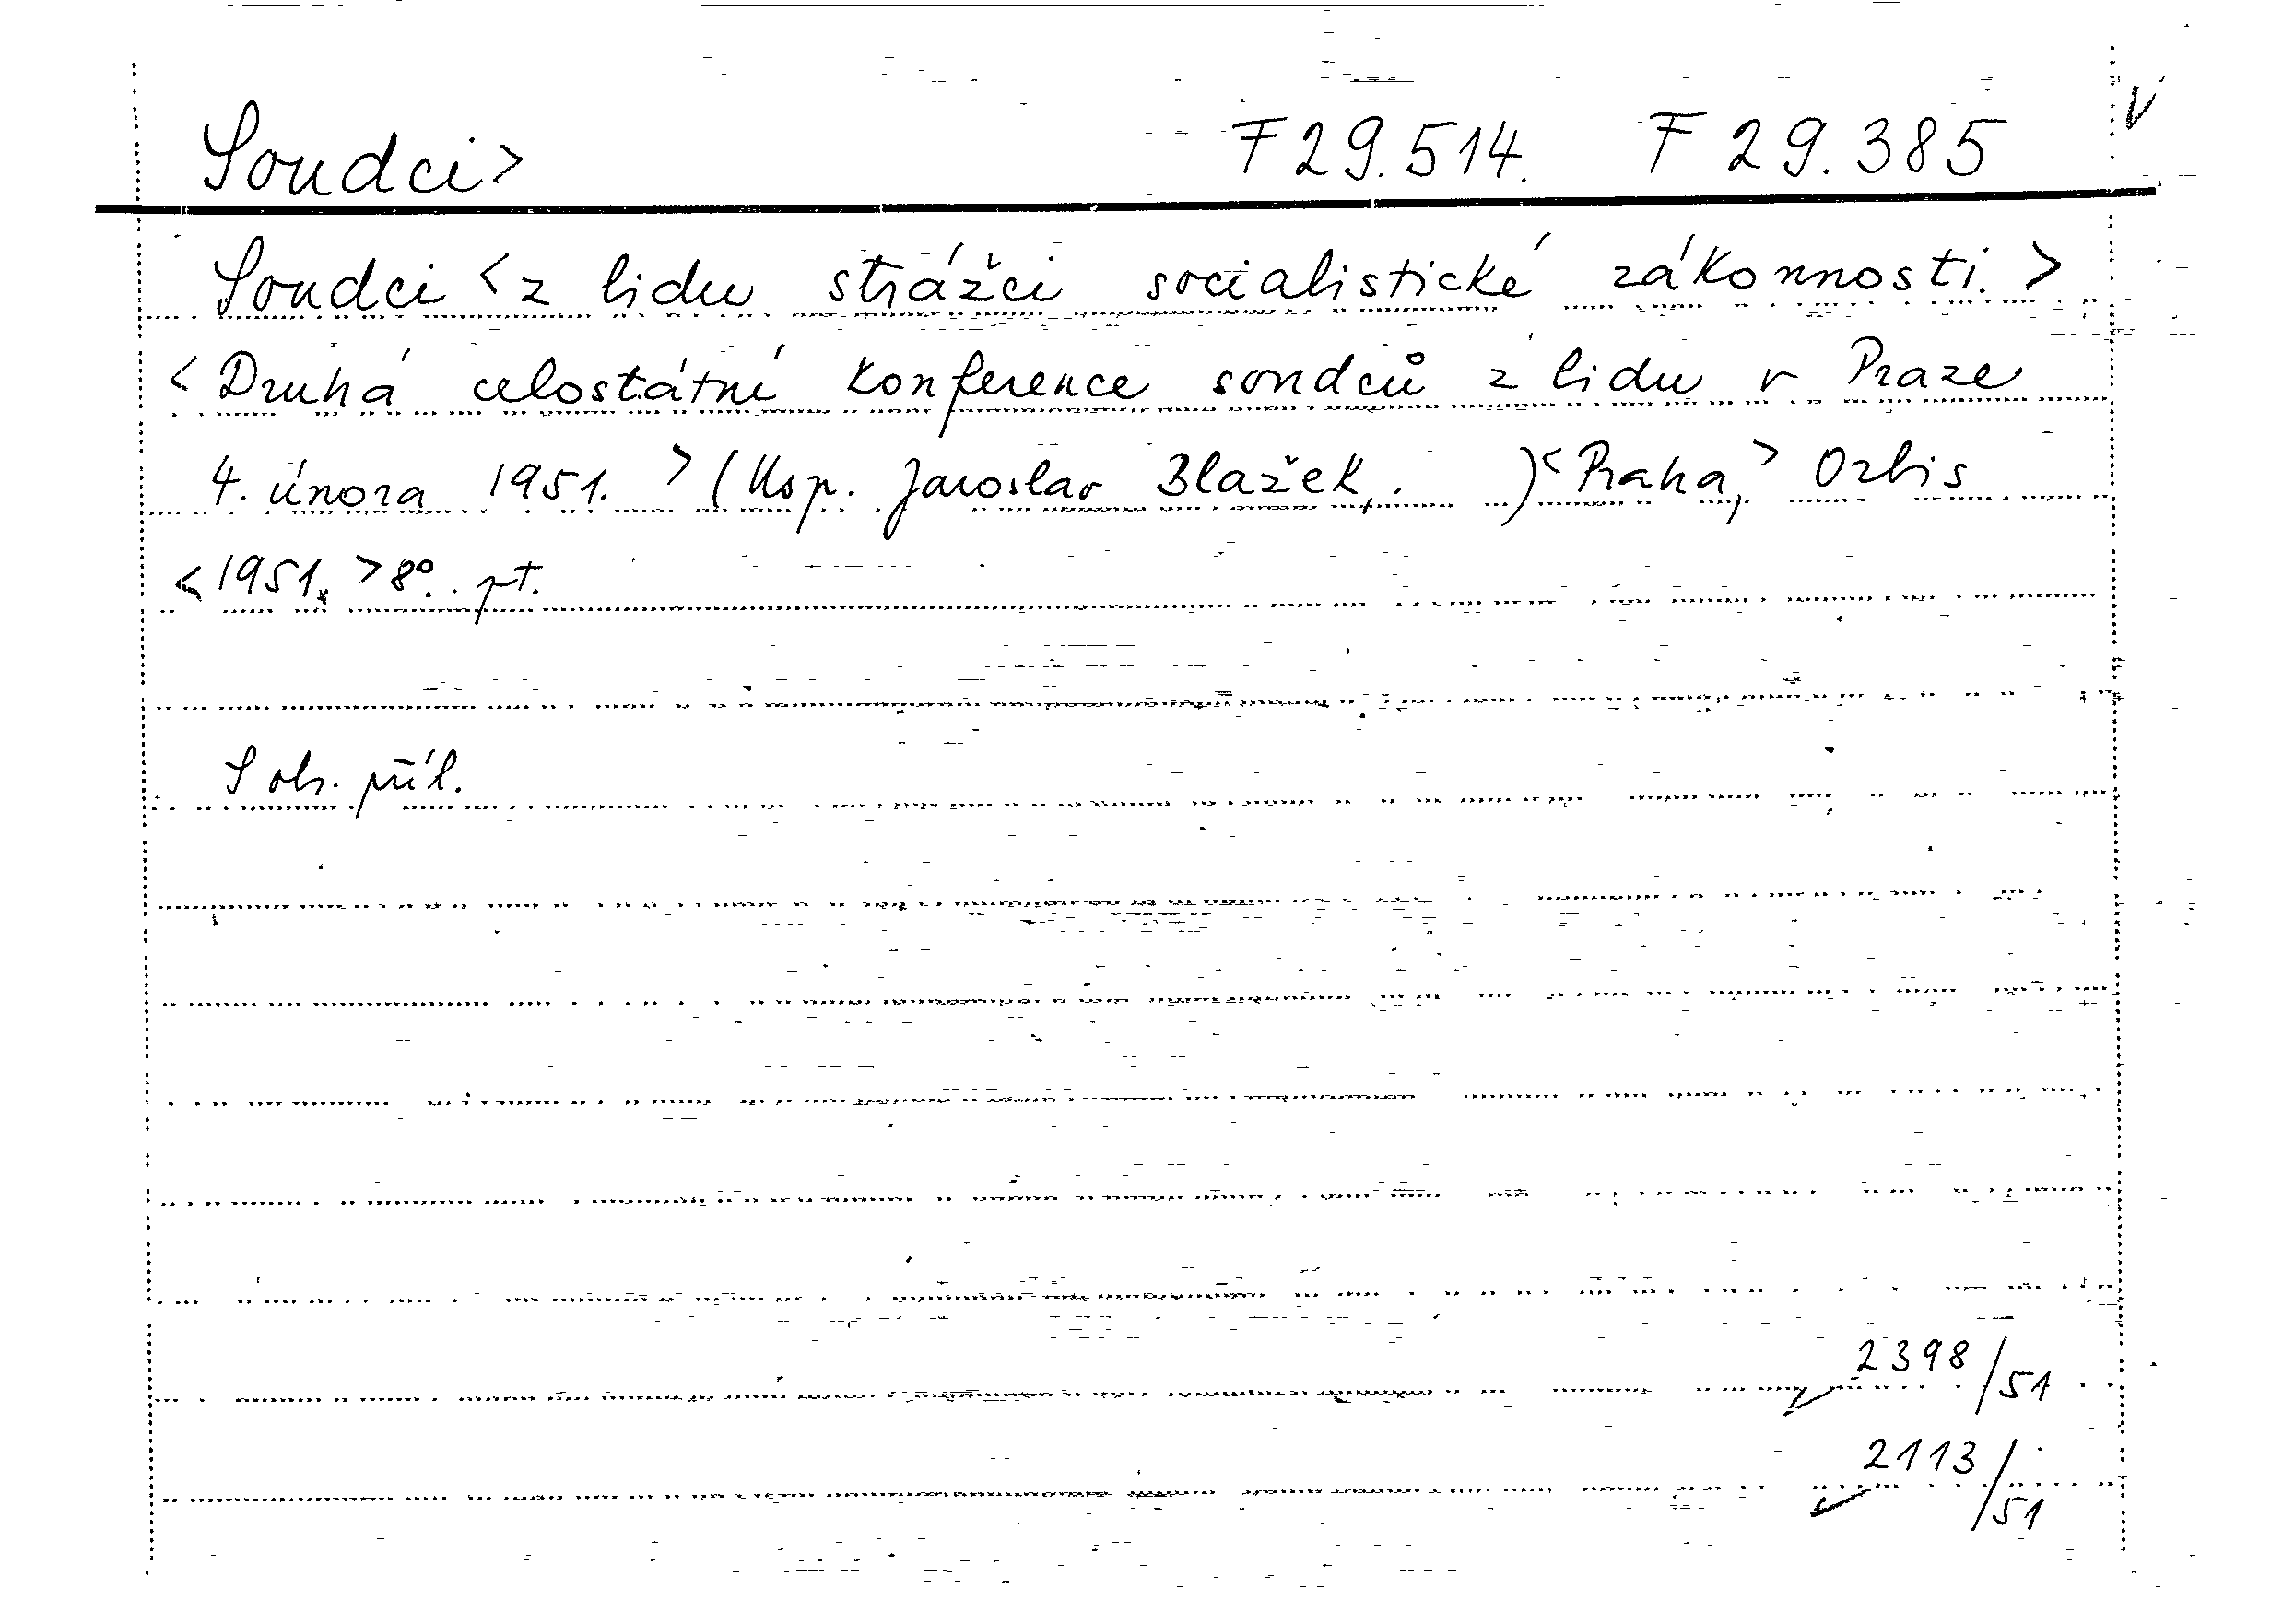 Soudci> F 29.514. F 29.385 V
Soudci <z lidu strážci socialistické zákonnosti.>
<Druhá celostátní konference soudců z lidu v Praze
4. února 1951.> (Usp. Jaroslav Blažek, . )<Praha,> Orbis
<1951.> 8°. . pt.
S obr. příl.
2398/51
2113/51